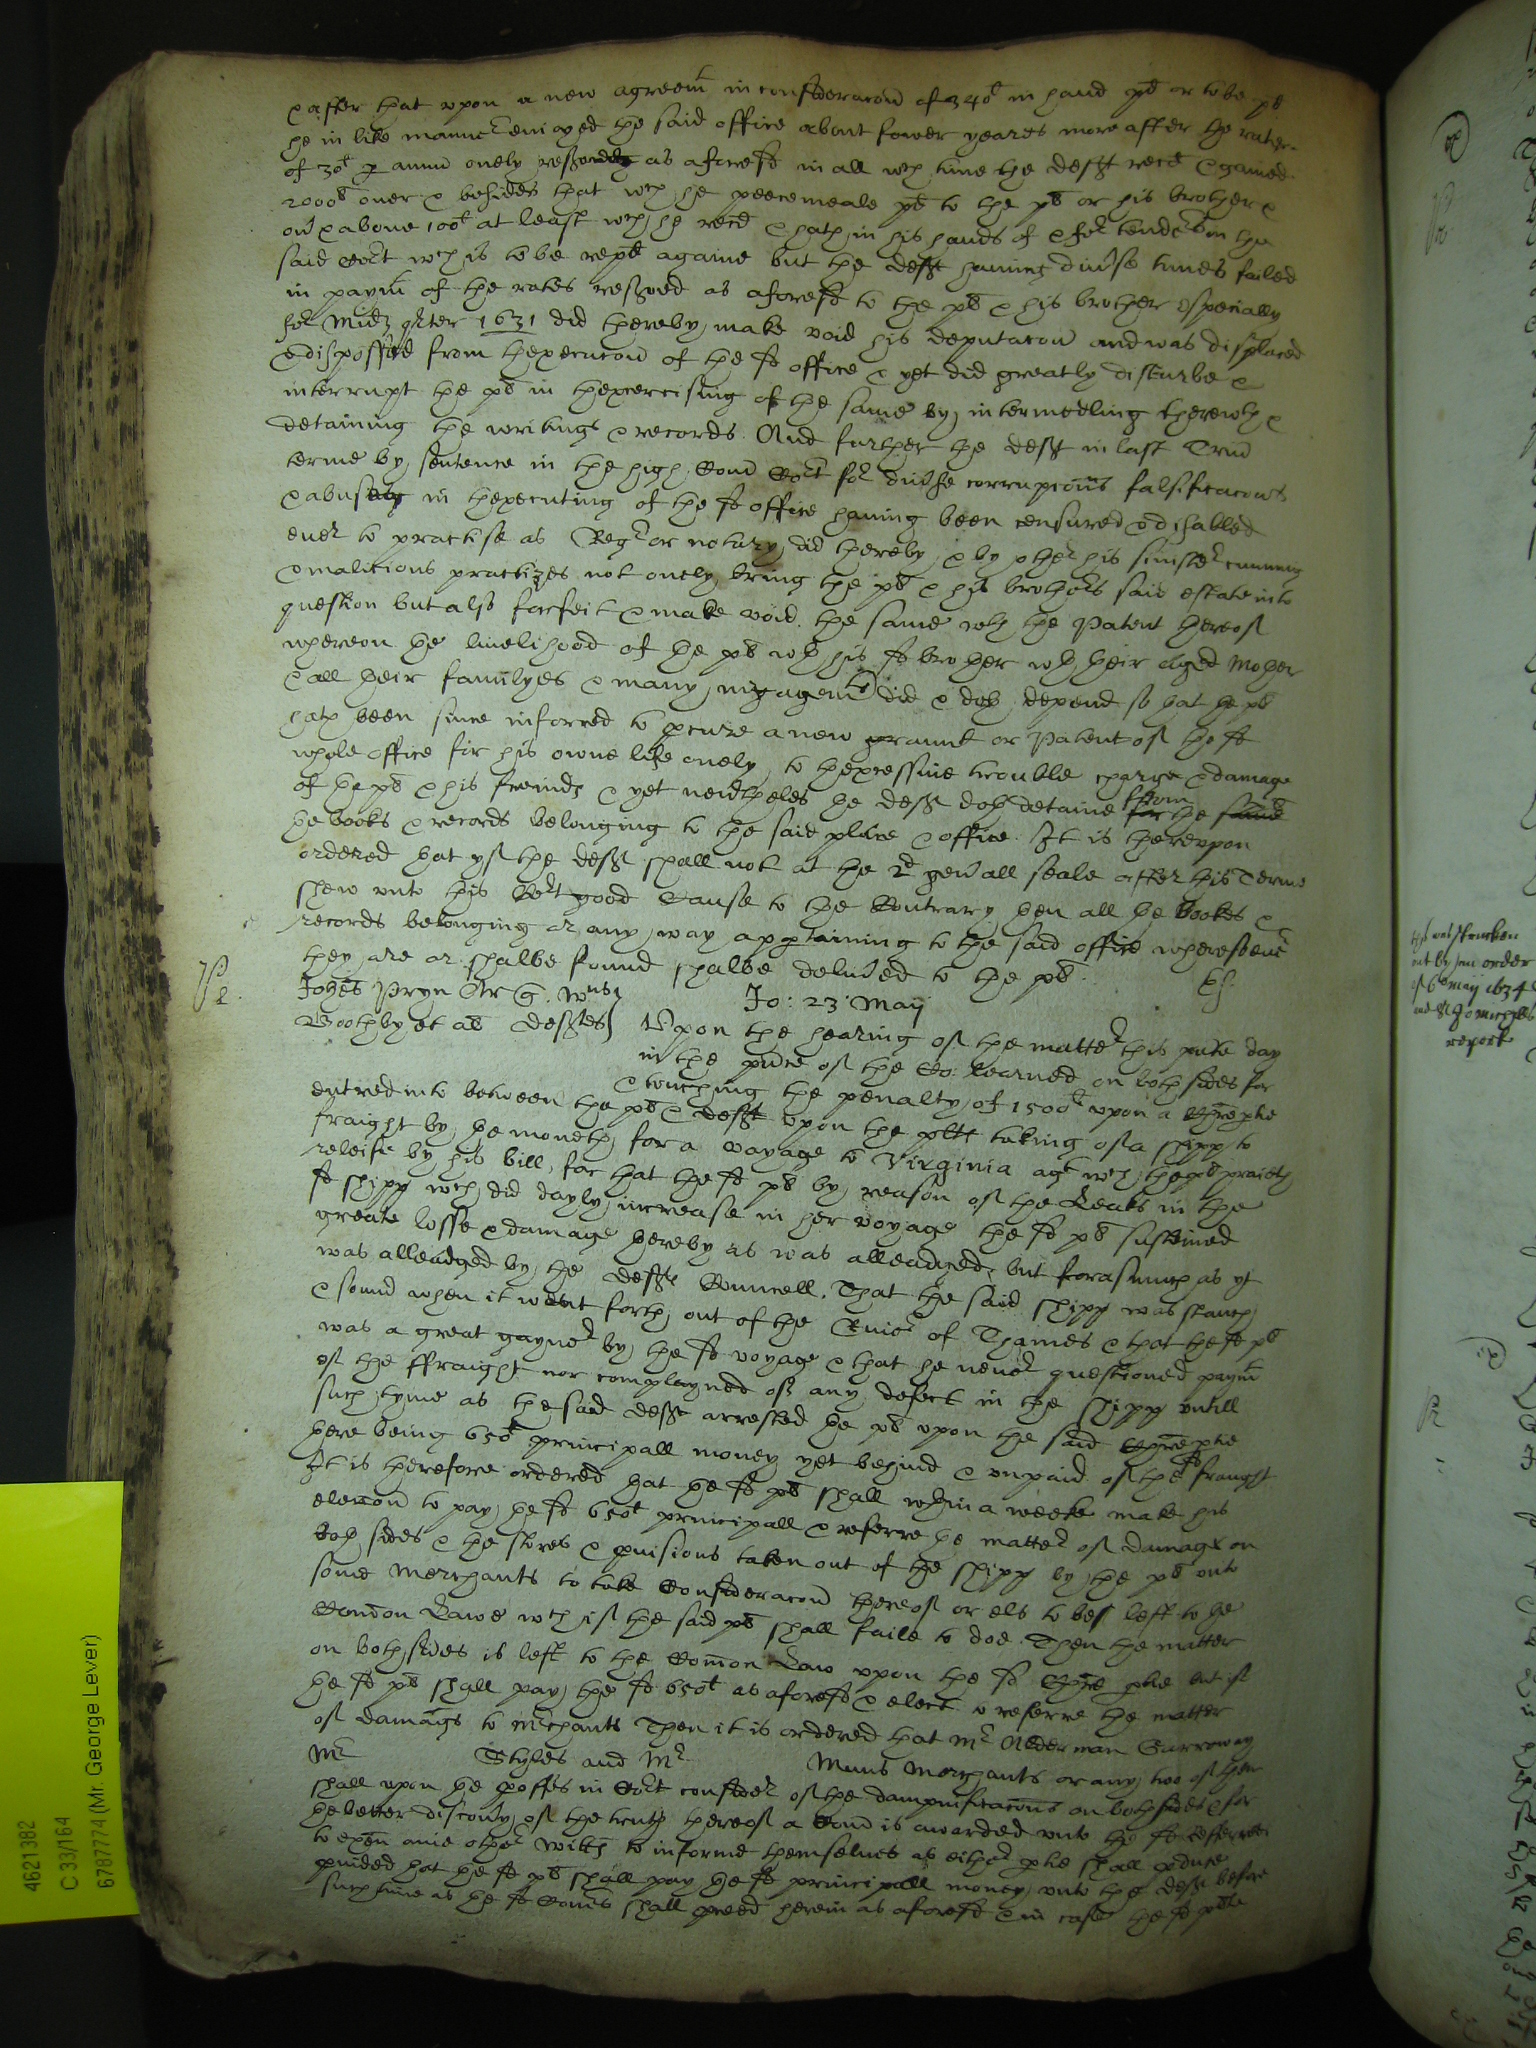 & after that vpon a new agreemt in consideracon of 340l in hand pd or to be pd
he in like manner enioyed the said office about fower yeares more after the rate
of 30l p annu onely as aforesd in all wch time the defft recd & gained
2000l ouer & besides that wch he peecemeale pd to the pl or his brother &
& aboue 100l at least wch he recd & hath in his hands of the
said Cort wch is to be repd againe but the defft hauing diuse times failed
in paymt of the rates as aforesd to the pl & his brother especially
for Midz qrter 1631 did thereby make void his deputacon and was displaced
& dispossed from thexecucon of the sd office & yet did greatly disturbe &
interrupt the pl in thexcercising of the same by intermedling therewth &
detaining the writings & records. And further the defft in last Trin
terme by sentence in the high Com Cort for diuse corrupcions falsificacons
& abuses in thexecuting of the sd office hauing been censured & disabled
euer to practise as Regr or notary did thereby & by other his sinister cunning
& malicious practizes not onely bring the pl & his brothers said estate into
question but also forfeit & make void the same wth the Patent thereof
whereon the liuelihood of the pl wth his sd brother wth their aged Mother
& all their familyes & many ingagemts did & doth depend so that the pl
hath been since inforced to pcure a new graunt or Patent of the sd
whole office for his owne life onely to thexcessiue trouble charge & damage
of the pl & his freinds & yet neutheles the defft doth detaine from the same
the books & records belonging to the said place & office. It is therevpon
ordered that yf the defft shall not at the 2d genall seale after this Terme
shew vnto this Cort good Cause to the Contrary then all the books &
records belonging or any way apptaining to the said office wheresoeuer
they are or shalbe found shalbe deliued to the pl.
Johes Pryn Ar G. Wms
Boothby et al Defftes
Jo: 23 Maij
Vpon the hearing of the matter this pnte day
in the pnce of the Co: learned on both sides for
& touching the penalty of 1500l vpon a Chre ptie
entred into between the pl & defft vpon the pltes taking of a shipp to
fraight by the moneth for a voyage to Virginia agt wch the pl praieth
releife by his bill, for that the sd pl by reason of the Leaks in the
sd shipp wch did dayly increase in her voyage the sd pl sustained
greate losse & damage thereby as was alleadged, but forasmuch as yt
was alleadged by the deffts Councell, That the said shipp was stanch
& sound when it went forth out of the Riuer of Thames & that the sd pl
was a great gayner by the sd voyage & that he neuer questioned paymt
of the ffraight nor complayned of any defect in the shipp vntill
such tyme as the said defft arrested the pl vpon the said Chre ptie
there being 650l principall money yet behind & vnpaid of the sd fraught
It is therefore ordered that the sd pl shall wthin a weeke make his
eleccon to pay the sd 650l principall & referre the matter of damage on
both sides & the stores & puisions taken out of the shipp by the pl vnto
some Merchants to take Consideracon thereof or els to be left to the
Comon Lawe wch if the said pl shall faile to doe. Then the matter
on both sides is left to the Comon Law vpon the sd Chre ptie but if
the sd pl shall pay the sd 650l as aforesd & elect to referre the matter
of damags to mrchants Then it is ordered that Mr Alderman Garroway
Mr Styles and Mr Muns Merchants or any two of them
shall vpon the in Cort consider of the dampnificacons on both sides & for
the better discouy of the truth thereof a Com is awarded vnto the sd refferrees
to exam anie other witts to informe themselues as either ptie shall pduce
puided that the sd pl shall pay the sd principall money vnto the defft before
such time as the sd Comrs shall pceed herein as aforesd & in case the sd plte
was strucken
out by an order
of 6 may 1634
report
4621382
C 33/164
6787774 (Mr. George Lever)